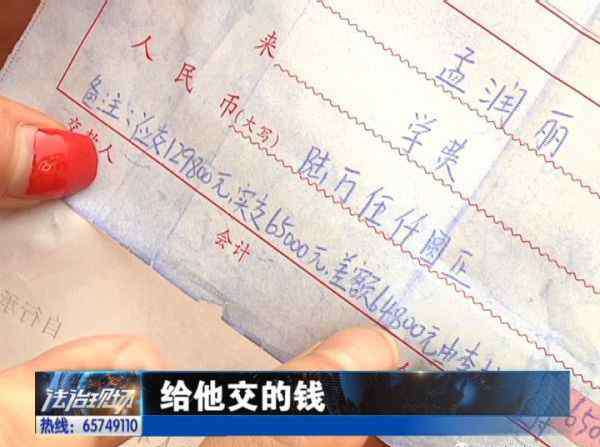 来 孟润丽
学费
人民币(大写) 陆万伍仟圆正
备注:应交129800元,实交65000元,差额64800元由李
交款人
会计
人
650
自行承
法治现场
给他交的钱
热线: 65749110